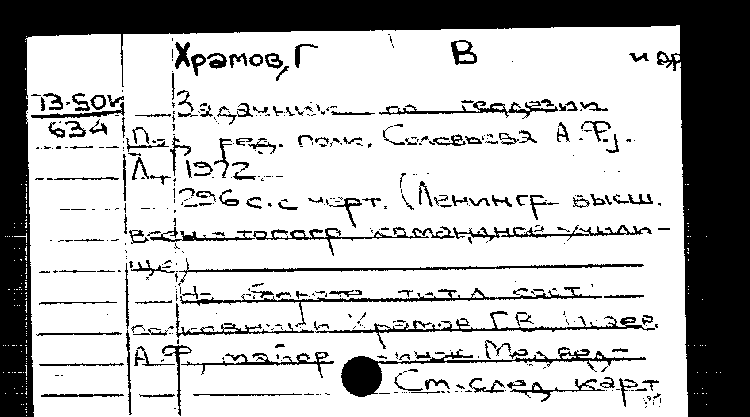 Храмов, Г В и др
73-50к
634
Задачник по геодезии
Под ред. полк. Соловьева А.Ф.
Л., 1972
296 с. с черт. (Ленингр высш.
воен.-топогр командное учили-
ще)
На обороте тит.л сост:
полковники Храмов Г.В,
А.Ф., майор -инж. Медвед-
См. след. карт